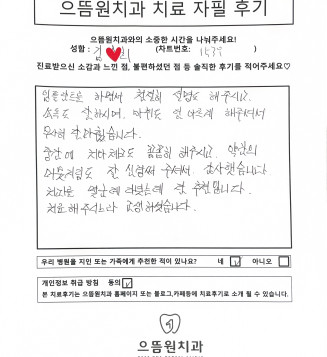 으뜸원치과 치료 자필 후기
으뜸원치과와의 소중한 시간을 나눠주세요!
성함 : 김 희 (차트번호: 1539 )
진료받으신 소감과 느낀 점, 불편하셨던 점 등 솔직한 후기를 적어주세요♡
임플란트로 하면서 친절히 설명도 해주시고.
소독도 잘하시며. 마취도 덜 아프게 해주셔서
무사히 잘 마쳤습니다.
중간에 치아체크도 꼼꼼히 해주시고. 약간의
어려움도 잘 신경써 주셔서 감사했습니다
치과로 열군데 다녔는데 강 추천합니다.
치료해주시느라 고생하셨습니다.
우리 병원을 지인 또는 가족에게 추천한 적이 있나요? 네 아니오
개인정보 취급 방침 동의
본 치료후기는 으뜸원치과 홈페이지 또는 블로그,카페등에 치료후기로 소개 될 수 있습니다.
으뜸원치과